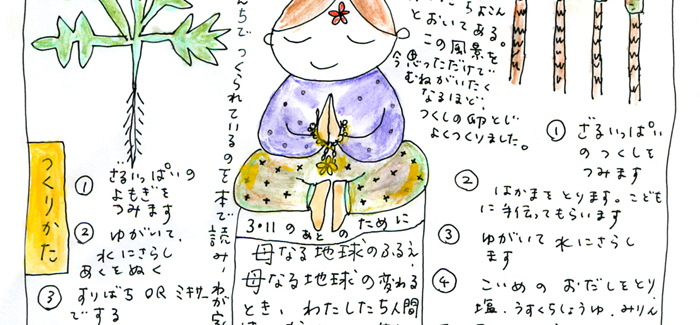 つくりかた
① ざるいっぱいの
よもぎを
つみます
② ゆがいて、
水にさらし
あくをぬく
③ すりばち OR ミキサー
でする
んちで つくられているのを本で読み、わが家
3・11のあとの ために
母なる地球のふるえ
母なる地球の変わる
とき、わたしたち人間
とおいてある。
この風景を
今思っただけで
むねがいたく
なるほど、
つくしの卵とじ
よくつくりました。
① ざるいっぱい
のつくしを
つみます
② はかまをとります。こども
に手伝ってもらいます
③ ゆがいて 水にさらし
ます
④ こいめの おだしをとり、
塩、うすくちしょうゆ、みりん